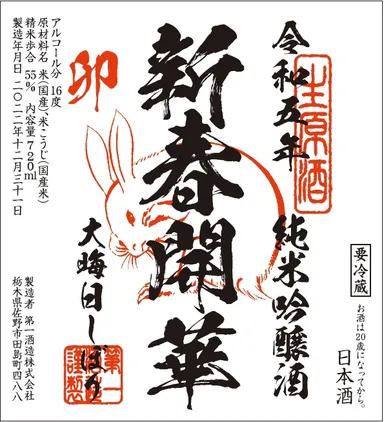 令和五年
生原酒
純米吟醸酒
要冷蔵
お酒は20歳になってから。
日本酒
新春開華
大晦日しぼり
卯
アルコール分 16度
原材料名 米(国産)、米こうじ(国産米)
精米歩合 55% 内容量720ml
製造年月日 二〇二二年十二月三十一日
製造者 第一酒造株式会社
栃木県佐野市田島町四八八